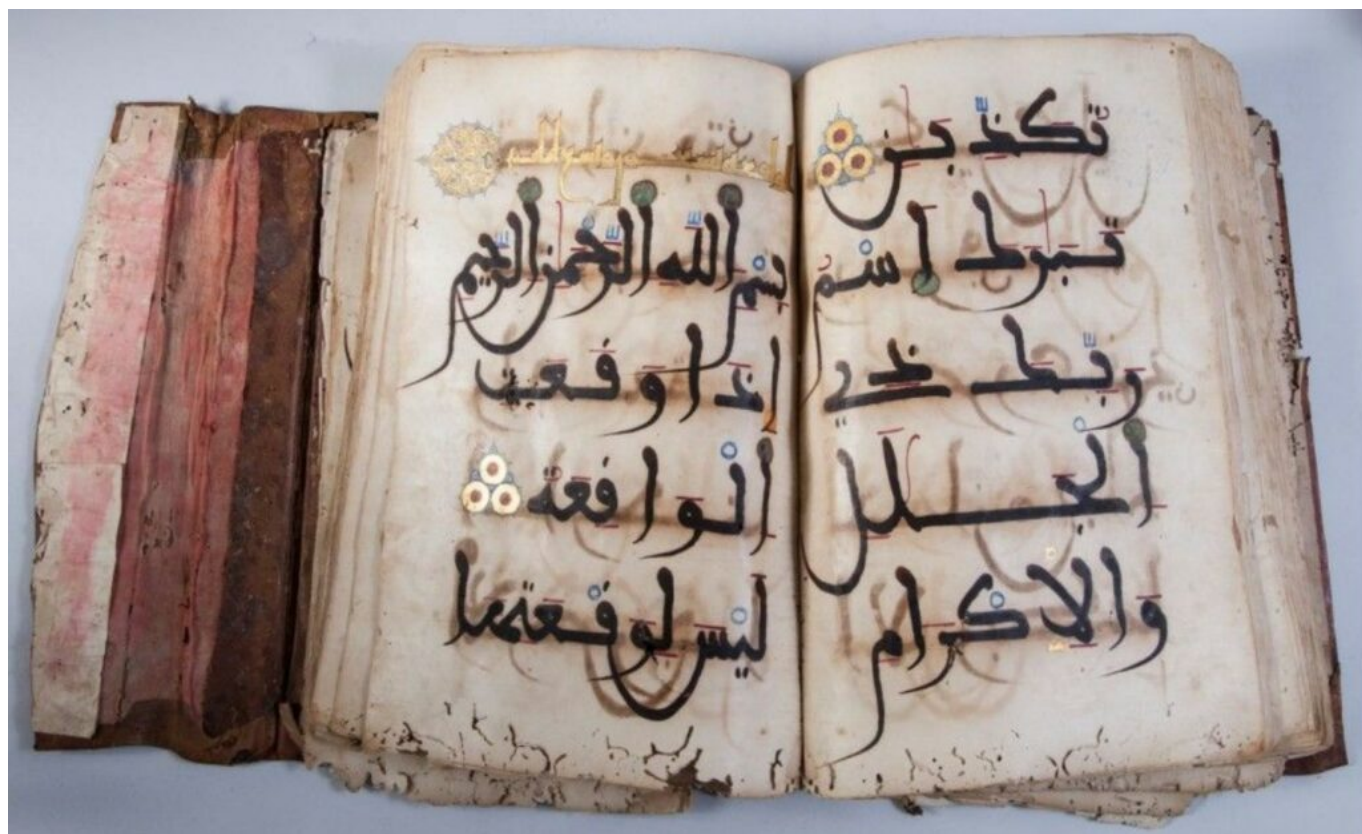 تكذبن
تبرك اسم
ربك ذي
الجلل
والاكرام
بسم الله الرحمن الرحيم
إذا وقعت
الواقعة
ليس لوقعتها